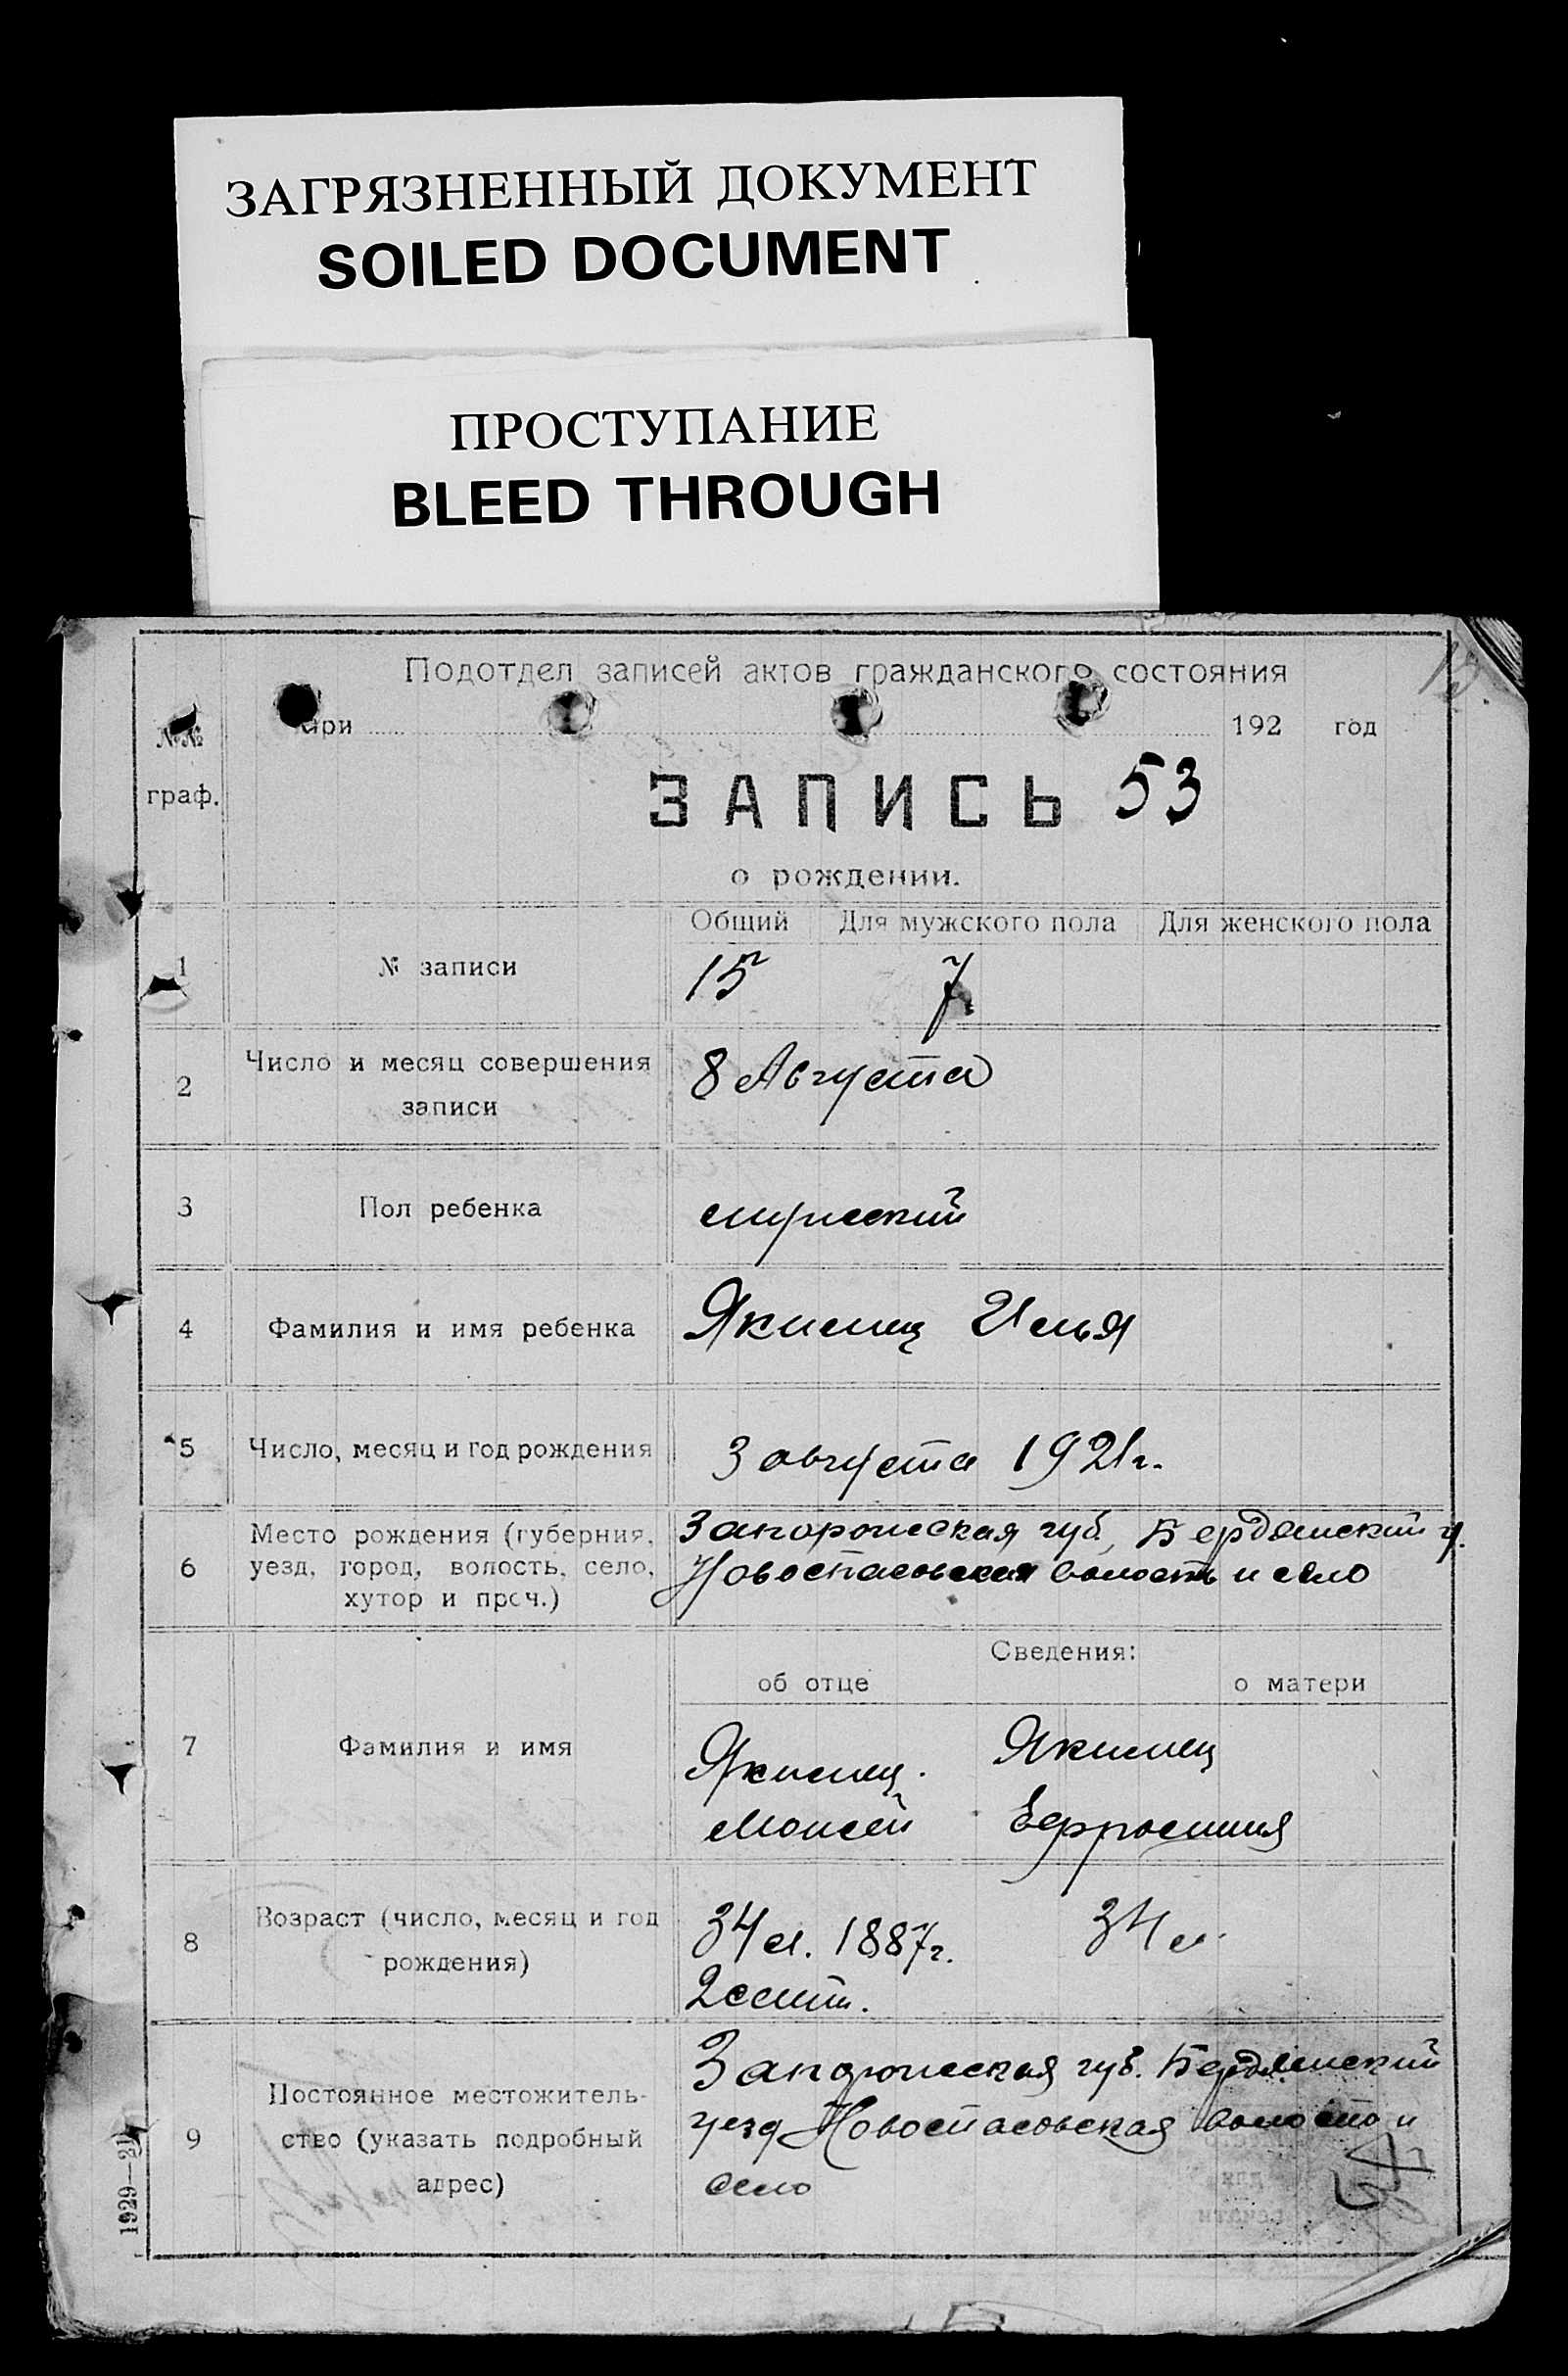 ЗАГРЯЗНЕННЫЙ ДОКУМЕНТ
SOILED DOCUMENT
ПРОСТУПАНИЕ
BLEED THROUGH
Подотдел записей актов гражданского состояния
при 192 год
№№
граф.
ЗАПИСЬ 53
о рождении.
Общий Для мужского пола Для женского пола
1 № записи 15 7
2 Число и месяц совершения
записи
8 Августа
3 Пол ребенка мужской
4 Фамилия и имя ребенка Якимец Илья
5 Число, месяц и год рождения 3 августа 1921 г.
6 Место рождения (губерния,
уезд, город, волость, село,
хутор и проч.)
Запорожская губ, Бердянский у.
Новоспасовская волость и село
Сведения:
об отце о матери
7 Фамилия и имя
Якимец. Якимец
Моисей Ефросиния
8 Возраст (число, месяц и год
рождения)
34 л. 1887 г. 34 л.
2 сент.
9 Постоянное местожитель-
ство (указать подробный
адрес)
Запорожская губ. Бердянский
уезд Новоспасовская волость и
село
1929—21